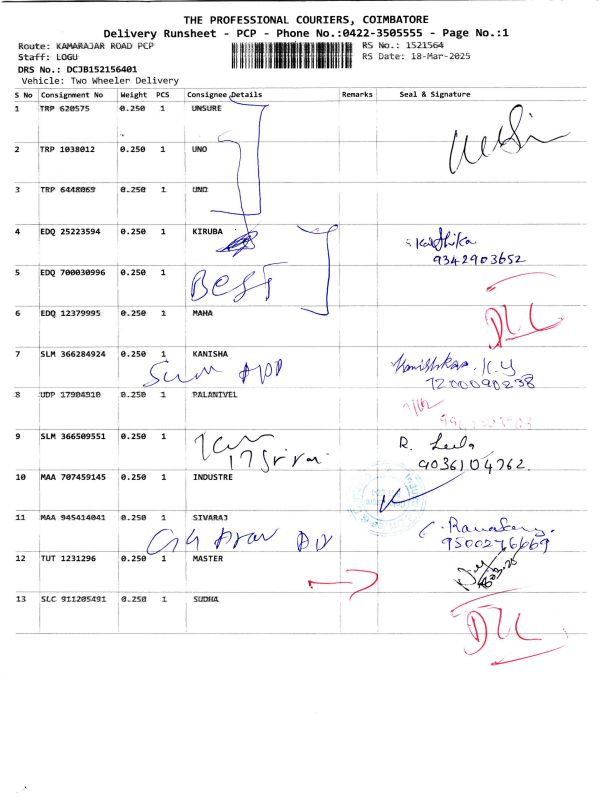 THE PROFESSIONAL COURIERS, COIMBATORE
Delivery Runsheet - PCP - Phone No.:0422-3505555 - Page No.:1
Route: KAMARAJAR ROAD PCP RS No.: 1521564
Staff: LOGU RS Date: 18-Mar-2025
DRS No.: DCJB152156401
Vehicle: Two Wheeler Delivery
S No Consignment No Weight PCS Consignee Details Remarks Seal & Signature
1 TRP 620575 0.250 1 UNSURE
2 TRP 1038012 0.250 1 UNO
3 TRP 6448069 0.250 1 UNO
4 EDQ 25223594 0.250 1 KIRUBA
9342903652
5 EDQ 700030996 0.250 1
BEST
6 EDQ 12379995 0.250 1 MAHA
7 SLM 366284924 0.250 1 KANISHA
7200090238
8 UDP 17904910 0.250 1 PALANIVEL
9 SLM 366509551 0.250 1 R. Leela
9036104762.
10 MAA 707459145 0.250 1 INDUSTRE
11 MAA 945414041 0.250 1 SIVARAJ
9500276669
12 TUT 1231296 0.250 1 MASTER
13 SLC 911205491 0.250 1 SUDHA